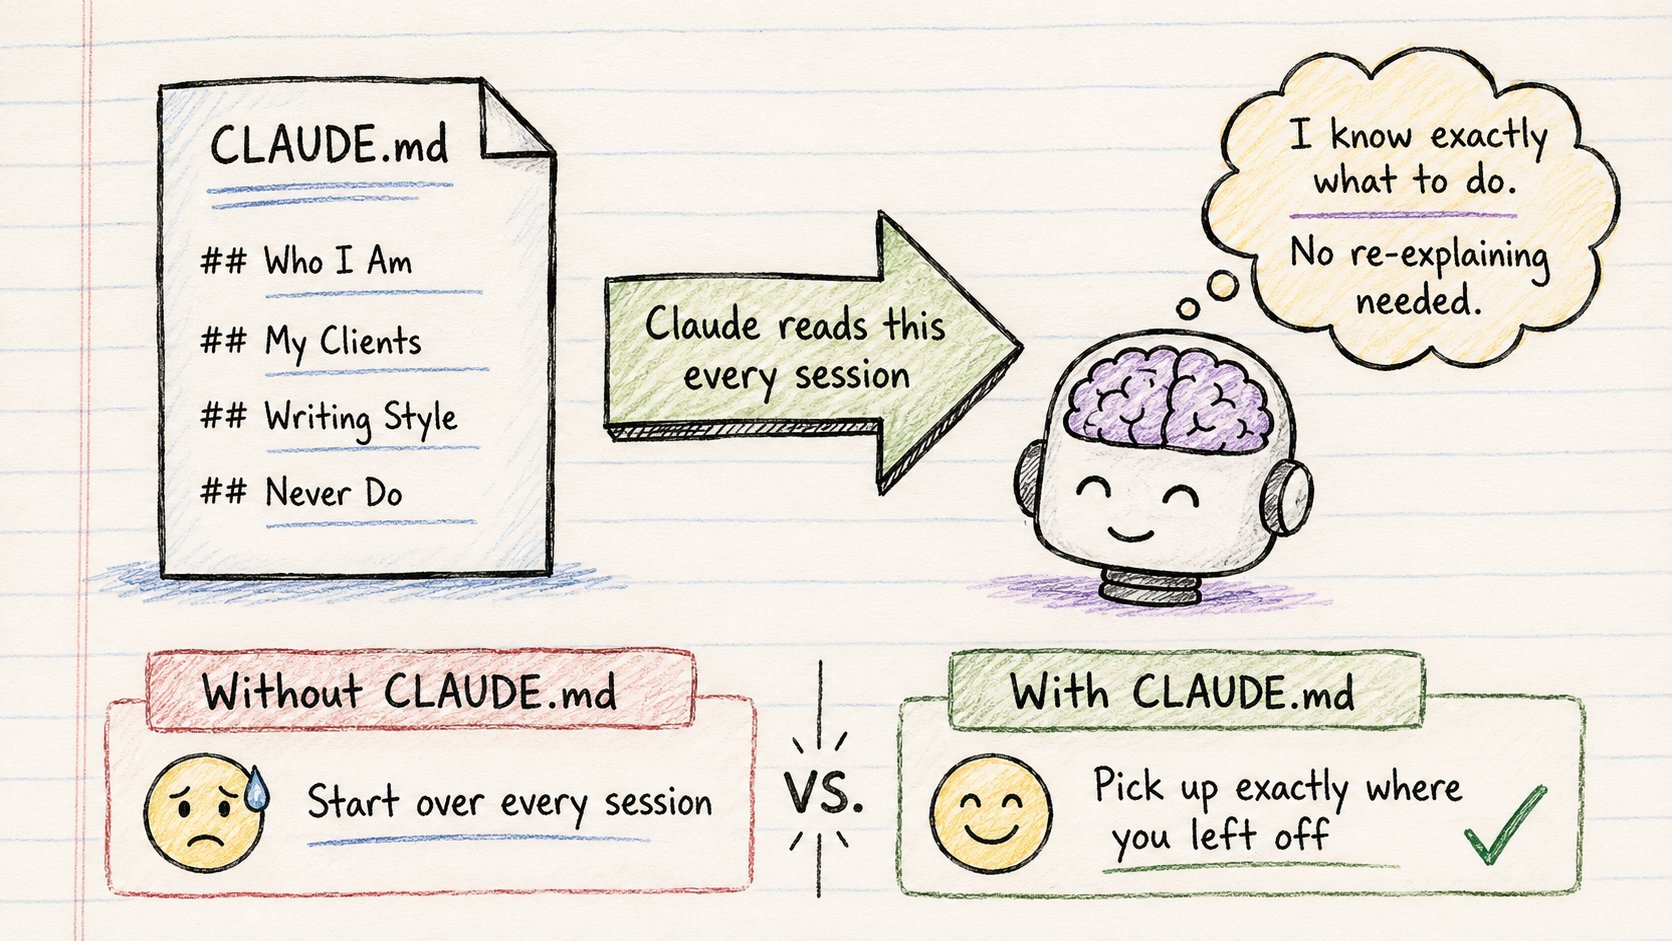 CLAUDE.md
## Who I Am
## My Clients
## Writing Style
## Never Do
Claude reads this
every session
I know exactly
what to do.
No re-explaining
needed.
Without CLAUDE.md
Start over every session
VS.
With CLAUDE.md
Pick up exactly where
you left off